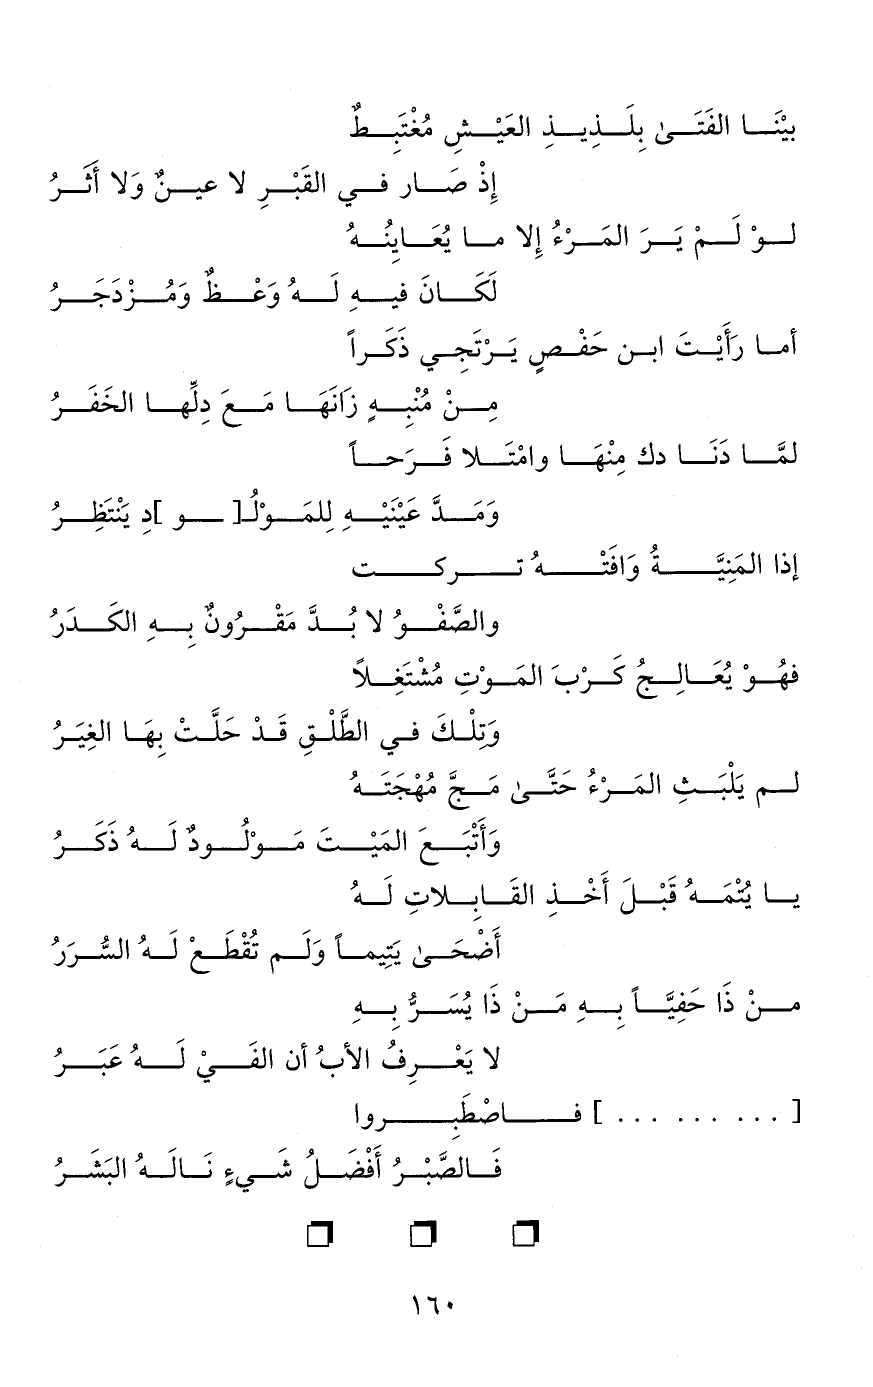 بيْنَا الفَتَىٰ بِلَذِيذِ العَيْشِ مُغْتَبِطٌ
إِذْ صَار في القَبْرِ لا عينٌ وَلا أَثَرُ
لوْ لَمْ يَرَ المَرْءُ إِلا ما يُعَايِنُهُ
لَكَانَ فيهِ لَهُ وَعْظٌ وَمُزْدَجَرُ
أما رَأَيْتَ ابن حَفْصٍ يَرْتَجِي ذَكَراً
مِنْ مُنْبِهٍ زَانَهَا مَعَ دِلِّها الخَفَرُ
لمَّا دَنَا دك مِنْهَا وامْتَلا فَرَحاً
وَمَدَّ عَيْنَيْهِ لِلمَوْلُـ[ـو]دِ يَنْتَظِرُ
إذا المَنِيَّةُ وَافَتْهُ تركت
والصَّفْوُ لا بُدَّ مَقْرُونٌ بِهِ الكَدَرُ
فهُوْ يُعَالِجُ كَرْبَ المَوْتِ مُشْتَغِلاً
وَتِلْكَ في الطَّلْقِ قَدْ حَلَّتْ بِهَا الغِيَرُ
لم يَلْبَثِ المَرْءُ حَتَّىٰ مَجَّ مُهْجَتَهُ
وَأَتْبَعَ المَيْتَ مَوْلُودٌ لَهُ ذَكَرُ
يا يُتْمَهُ قَبْلَ أَخْذِ القَابِلاتِ لَهُ
أَضْحَىٰ يَتِيماً وَلَم تُقْطَعْ لَهُ السُّرَرُ
منْ ذَا حَفِيَّاً بِهِ مَنْ ذَا يُسَرُّ بِهِ
لا يَعْرِفُ الأبُ أن الفَيْ لَهُ عَبَرُ
[ . . . . . . . . . ] فاصْطَبِروا
فَالصَّبْرُ أَفْضَلُ شَيءٍ نَالَهُ البَشَرُ
١٦٠